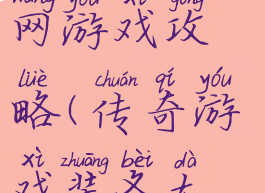 wǎng yóu xì gōng
网游戏攻
lüè chuán qí yóu
略(传奇游
xì zhuāng bèi dà
戏装备大